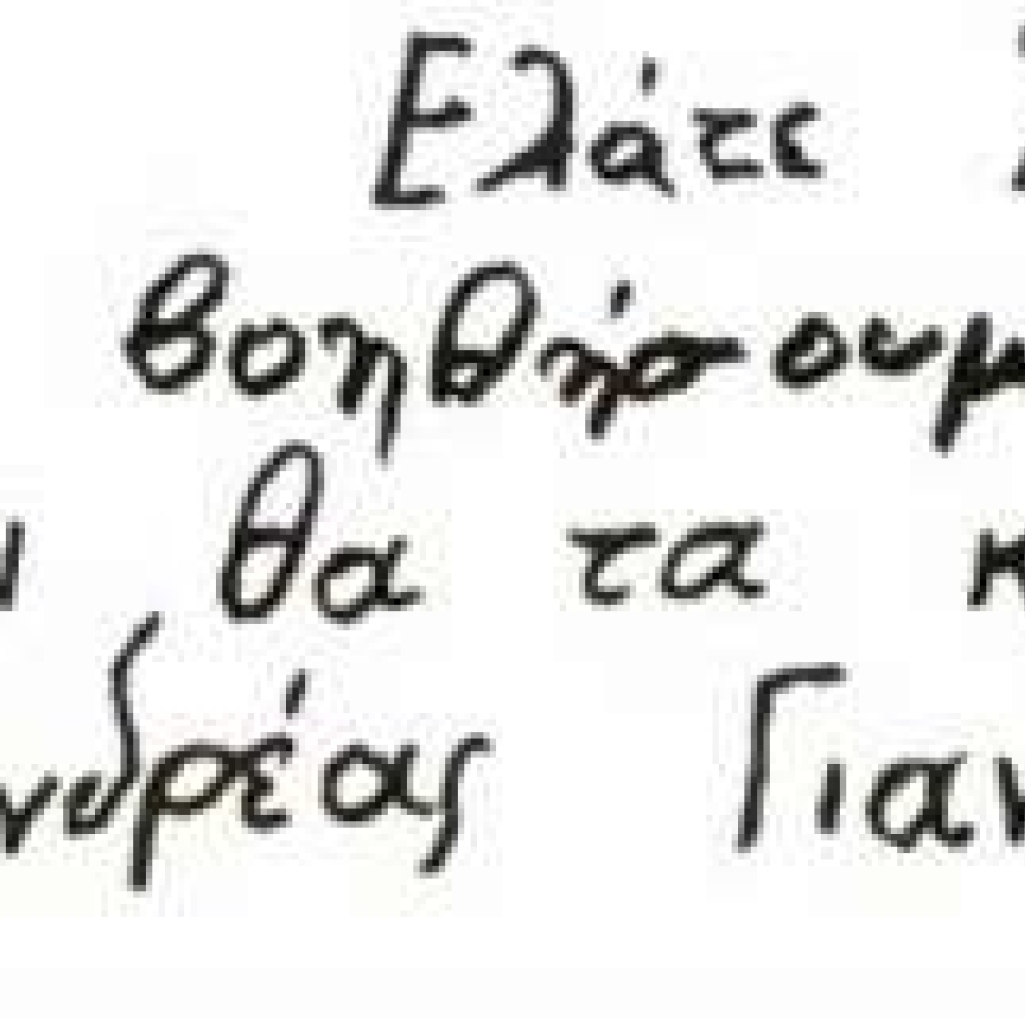 Ελάτε
βοηθήσουμ
θα τα κ
νδρέας Γιαν